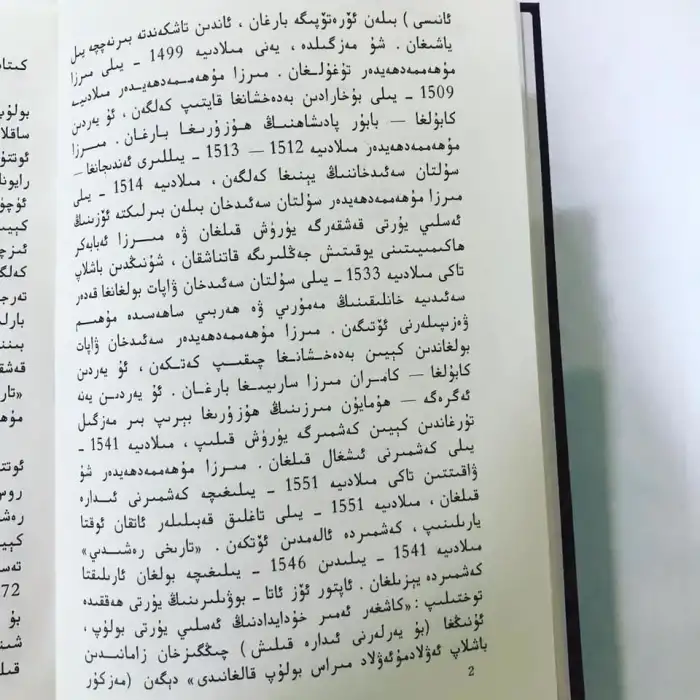 ئانىسى ) بىلەن ئۆرەتۆپىگە بارغان ، ئاندىن تاشكەندتە بىرنەچچە يىل
ياشىغان . شۇ مەزگىلدە ، يەنى مىلادىيە 1499 ـ يىلى مىرزا
مۇھەممەدھەيدەر تۇغۇلغان . مىرزا مۇھەممەدھەيدەر مىلادىيە
1509 ـ يىلى بۇخارادىن بەدەخشانغا قايتىپ كەلگەن ، ئۇ يەردىن
كابۇلغا — بابۇر پادىشاھنىڭ ھۇزۇرىغا بارغان . مىرزا
مۇھەممەدھەيدەر مىلادىيە 1512 — 1513 ـ يىللىرى ئەندىجانغا —
سۇلتان سەئىدخاننىڭ يېنىغا كەلگەن ، مىلادىيە 1514 ـ يىلى
مىرزا مۇھەممەدھەيدەر سۇلتان سەئىدخان بىلەن بىرلىكتە ئۆزىنىڭ
ئەسلىي يۇرتى قەشقەرگە يۈرۈش قىلغان ۋە مىرزا ئەبابەكر
ھاكىمىيىتىنى يوقىتىش جەڭلىرىگە قاتناشقان ، شۇنىڭدىن باشلاپ
تاكى مىلادىيە 1533 ـ يىلى سۇلتان سەئىدخان ۋاپات بولغانغا قەدەر
سەئىدىيە خانلىقىنىڭ مەمۇرىي ۋە ھەربىي ساھەسىدە مۇھىم
ۋەزىپىلەرنى ئۆتىگەن . مىرزا مۇھەممەدھەيدەر سەئىدخان ۋاپات
بولغاندىن كېيىن بەدەخشانغا چىقىپ كەتكەن ، ئۇ يەردىن
كابۇلغا — كامران مىرزا سارىيىغا بارغان . ئۇ يەردىن يەنە
ئەگرەگە — ھۇمايۇن مىرزىنىڭ ھۇزۇرىغا بېرىپ بىر مەزگىل
تۇرغاندىن كېيىن كەشمىرگە يۈرۈش قىلىپ ، مىلادىيە 1541 ـ
يىلى كەشمىرنى ئىشغال قىلغان . مىرزا مۇھەممەدھەيدەر شۇ
ۋاقىتتىن تاكى مىلادىيە 1551 ـ يىلىغىچە كەشمىرنى ئىدارە
قىلغان ، مىلادىيە 1551 ـ يىلى تاغلىق قەبىلىلەر ئاتقان ئوقتا
يارىلىنىپ ، كەشمىردە ئالەمدىن ئۆتكەن . «تارىخى رەشىدىي»
مىلادىيە 1541 ـ يىلىدىن 1546 ـ يىلىغىچە بولغان ئارىلىقتا
كەشمىردە يېزىلغان . ئاپتور ئۆز ئاتا ـ بوۋىلىرىنىڭ يۇرتى ھەققىدە
توختىلىپ : «كاشغەر ئەمىر خۇدايدادنىڭ ئەسلىي يۇرتى بولۇپ ،
ئۇنىڭغا (بۇ يەرلەرنى ئىدارە قىلىش ) چىڭگىزخان زامانىدىن
باشلاپ ئەۋلادمۇئەۋلاد مىراس بولۇپ قالغانىدى» دېگەن (مەزكۇر
2